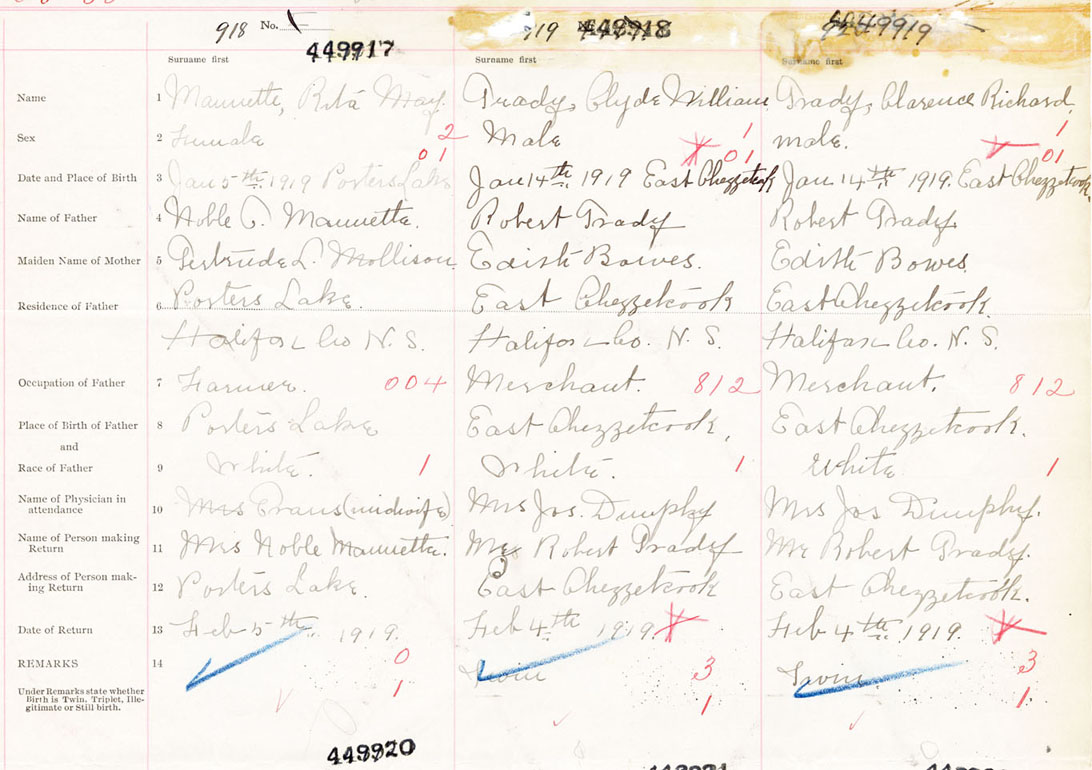 918 No. 449917 919 449918 449919
Surname first Surname first Surname first
Name 1 Mannette, Rita May. Grady, Clyde William Grady, Clarence Richard,
Sex 2 Female 2 Male 1 male. 1
01 01 01
Date and Place of Birth 3 Jan 5th 1919 Porters Lake Jan 14th 1919 East Chezzetcook Jan 14th 1919. East Chezzetcook
Name of Father 4 Noble C. Mannette. Robert Grady Robert Grady
Maiden Name of Mother 5 Gertrude L. Mollison Edith Bowes. Edith Bowes.
Residence of Father 6 Porters Lake. East Chezzetcook East Chezzetcook.
Halifax Co N. S. Halifax Co. N. S. Halifax Co. N. S.
Occupation of Father 7 Farmer. 004 Merchant. 812 Merchant. 812
Place of Birth of Father 8 Porters Lake East Chezzetcook, East Chezzetcook.
and
Race of Father 9 White. 1 White. 1 White 1
Name of Physician in
attendance 10 Mrs Evans (midwife) Mrs Jos. Dunphy Mrs Jos Dunphy.
Name of Person making
Return 11 Mrs Noble Mannette. Mr Robert Grady Mr Robert Grady.
Address of Person mak-
ing Return 12 Porters Lake. East Chezzetcook East Chezzetcook.
Date of Return 13 Feb 5th 1919. Feb 4th 1919. Feb 4th 1919.
REMARKS 14 0 Twin 3 Twin 3
Under Remarks state whether
Birth is Twin, Triplet, Ille-
gitimate or Still birth. 1 1 1
449920